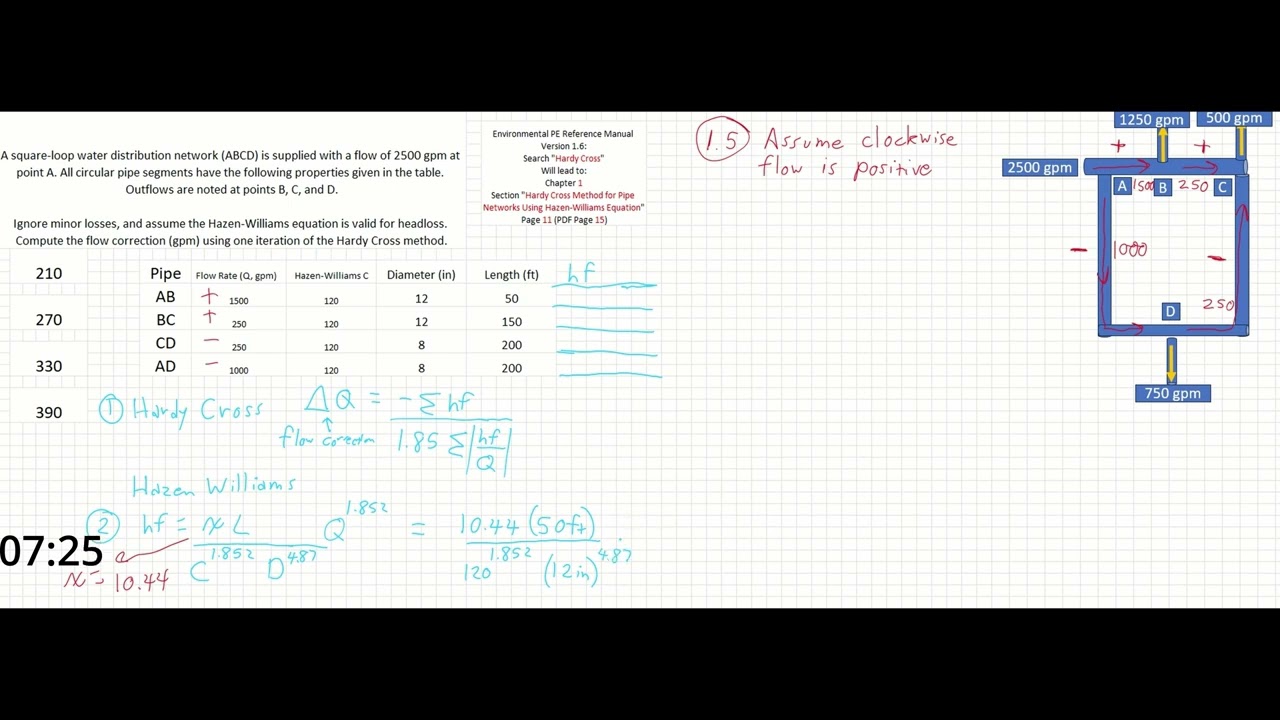 A square-loop water distribution network (ABCD) is supplied with a flow of 2500 gpm at
point A. All circular pipe segments have the following properties given in the table.
Outflows are noted at points B, C, and D.
Ignore minor losses, and assume the Hazen-Williams equation is valid for headloss.
Compute the flow correction (gpm) using one iteration of the Hardy Cross method.
Environmental PE Reference Manual
Version 1.6:
Search "Hardy Cross"
Will lead to:
Chapter 1
Section "Hardy Cross Method for Pipe
Networks Using Hazen-Williams Equation"
Page 11 (PDF Page 15)
210
270
330
390
Pipe Flow Rate (Q, gpm) Hazen-Williams C Diameter (in) Length (ft) hf
AB + 1500 120 12 50
BC + 250 120 12 150
CD - 250 120 8 200
AD - 1000 120 8 200
① Hardy Cross ΔQ = -Σ hf
flow correction 1.85 Σ |hf/Q|
Hazen Williams
② hf = x L Q^1.852 = 10.44 (50ft)
C^1.852 D^4.87 120^1.852 (12in)^4.87
x = 10.44
07:25
1.5 Assume clockwise
flow is positive
1250 gpm 500 gpm
+ +
2500 gpm
A 1500 B 250 C
- 1000 -
D 250
750 gpm